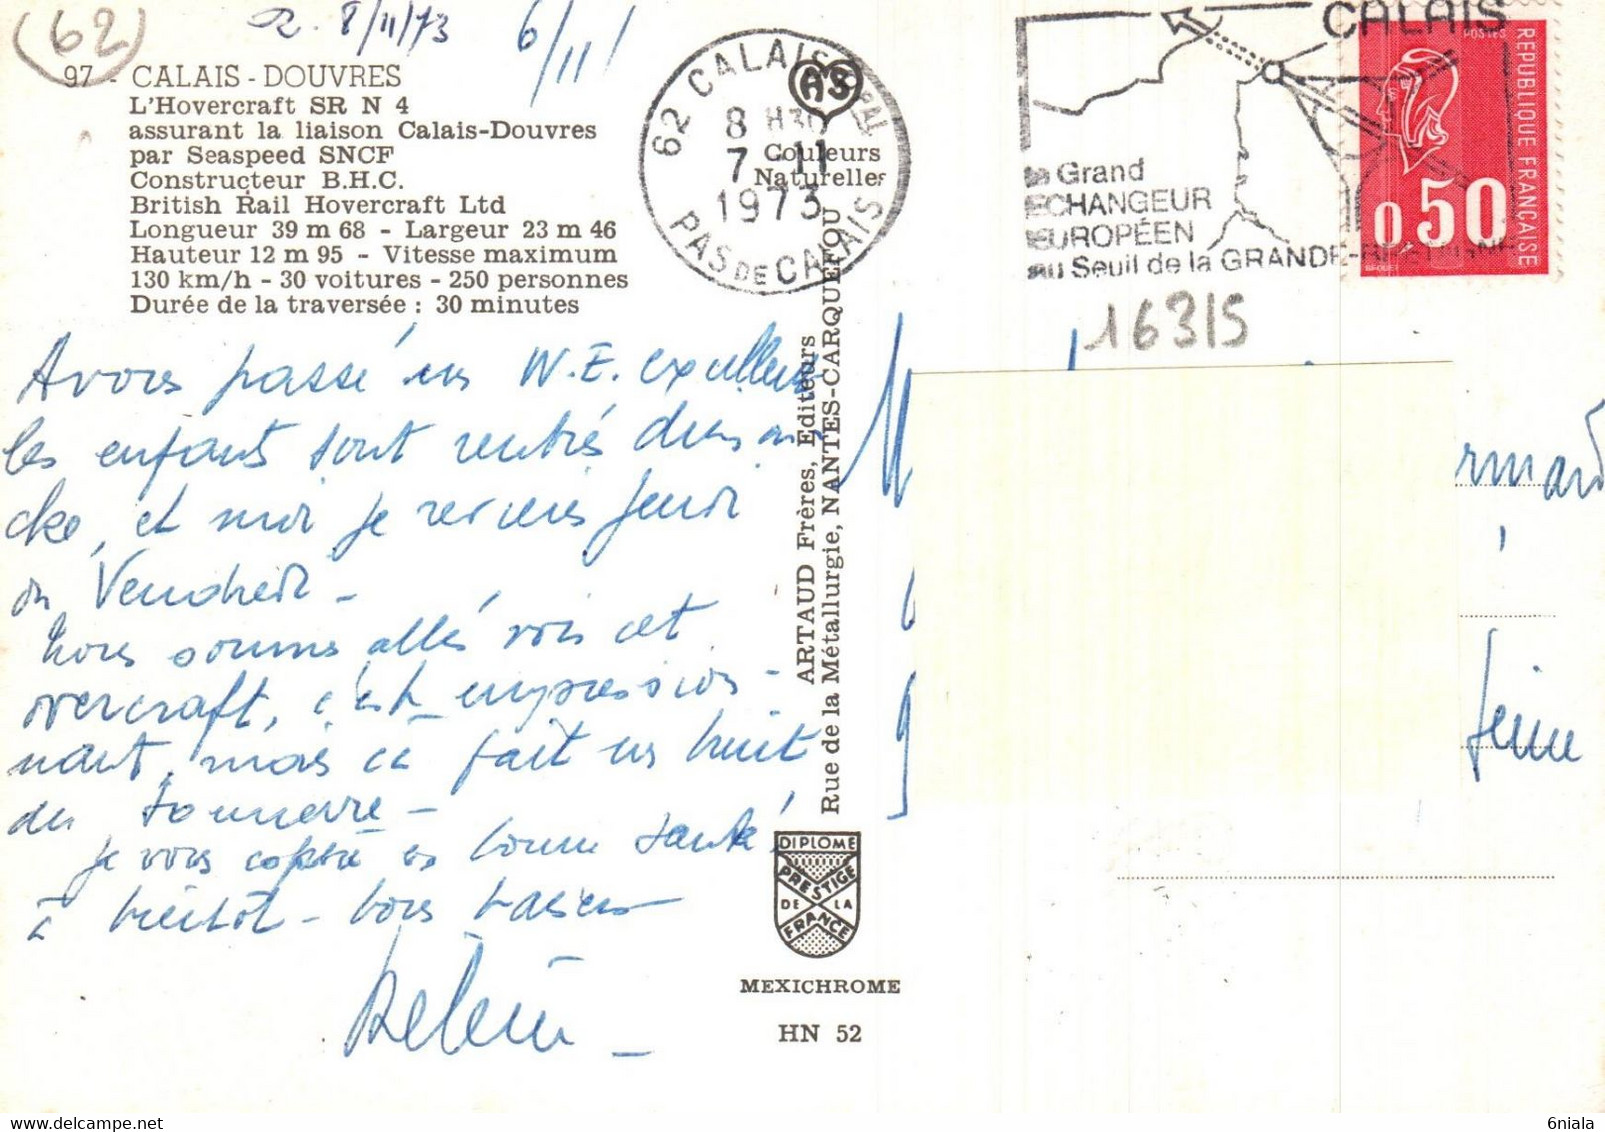 (62)
R. 8/11/73
6/11/
97 - CALAIS - DOUVRES
L'Hovercraft SR N 4
assurant la liaison Calais-Douvres
par Seaspeed SNCF
Constructeur B.H.C.
British Rail Hovercraft Ltd
Longueur 39 m 68 - Largeur 23 m 46
Hauteur 12 m 95 - Vitesse maximum
130 km/h - 30 voitures - 250 personnes
Durée de la traversée : 30 minutes
62 CALAIS PAL
8 H30
7 - 11
1973
PAS DE CALAIS
AS
Couleurs
Naturelles
CALAIS
le Grand
ECHANGEUR
EUROPÉEN
au Seuil de la GRANDE-BRETAGNE
POSTES
REPUBLIQUE FRANÇAISE
0,50
BEQUET
16315
Avons passé un W.E. excellent
les enfants sont rentrés dim
che, et moi je reviens Jeudi
ou Vendredi -
Nous sommes allés voir cet
overcraft, c'est impression-
nant, mais ça fait un bruit
du tonnerre -
Je vous espère en bonne santé!
à bientôt - bons baisers
ARTAUD Frères, Editeurs
Rue de la Métallurgie, NANTES-CARQUEFOU
M
rmand
Seine
DIPLOME
PRESTIGE
DE LA
FRANCE
MEXICHROME
HN 52
6niala